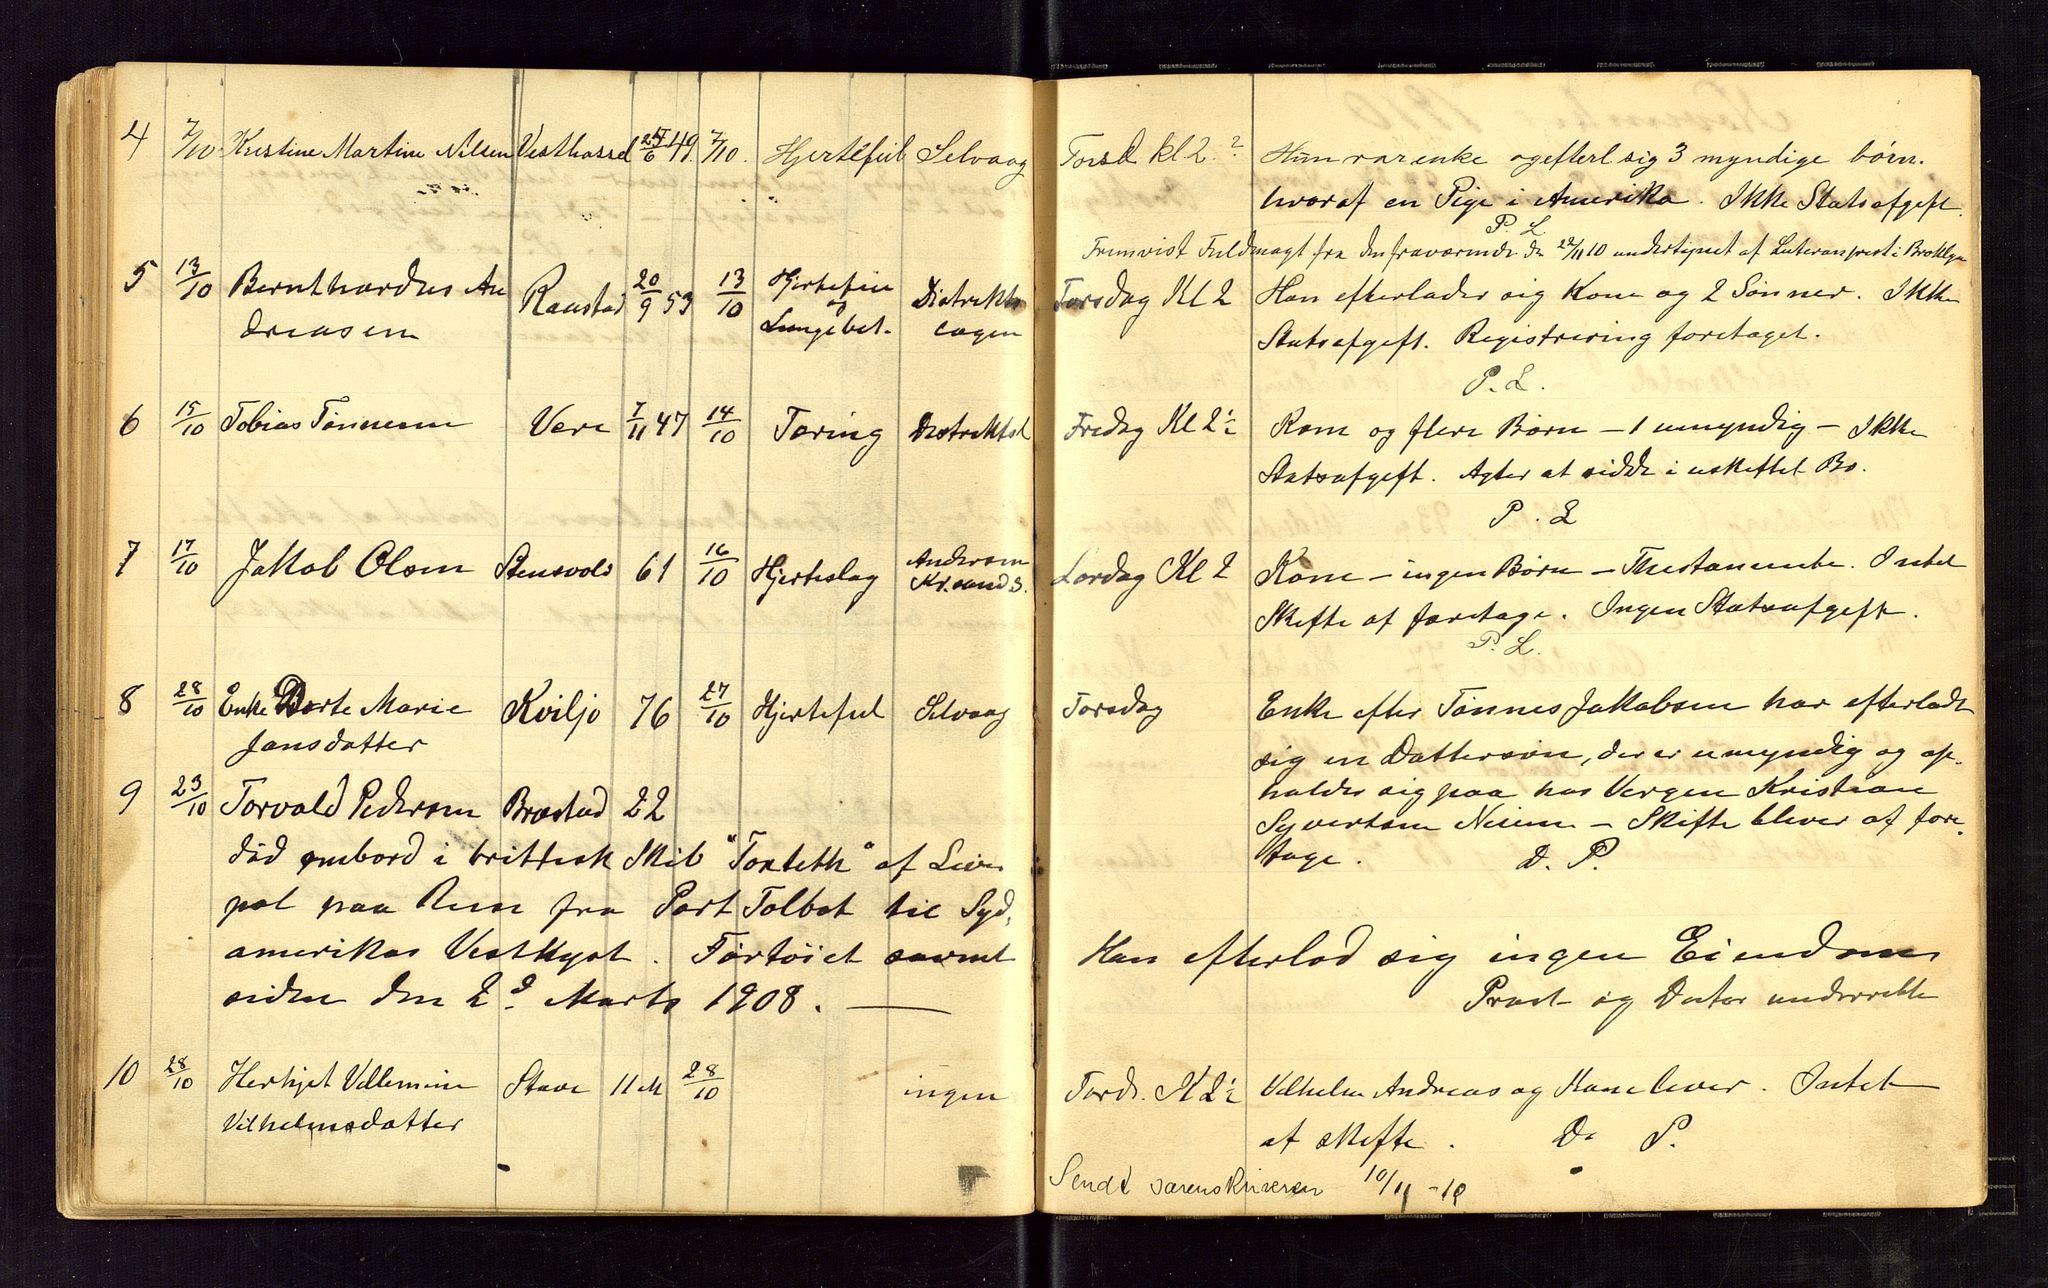 4 7/10 Kristine Martine Nilsen Vesthassel 25/6 49 7/10. Hjertefeil Selvaag Torsd kl 2 ? Hun var enke og efterl sig 3 myndige børn.
hvoraf en Pige i Amerika. Ikke Statsafgift.
P. L
Fremvist Fuldmagt fra den fraværende den 22/11 10 undertegnet af Luteranprest i Brooklyn
5 13/10 Bernthardus An Raustad 20/9 53 13/10 Hjertefeil og Distrikts Torsdag Kl 2 Han efterlader sig Kone og 2 Sønner. Ikke
dreasen Lungebet. lægen Statsafgift. Registrering foretaget.
P. L.
6 15/10 Tobias Tønnesen Vere 7/11 47 14/10 Tæring Distriktsl Fredag Kl 2½ Kone og flere Børn – 1 umyndig – Ikke
Statsafgift. Agter at sidde i uskiftet Bo.
P. L
7 17/10 Jakob Olsen Stensvold 61 16/10 Hjerteslag Andersen Lørdag Kl 2 Kone – ingen Børn – Thestamente. Intet
Kr.sands. Skifte at foretage. Ingen Statsafgift.
P. L.
8 28/10 Enke Berte Marie Kviljo 76 27/10 Hjertefeil Selvaag Torsdag Enke efter Tønnes Jakobsen har efterladt
Jansdatter sig en Dattersøn, der er umyndig og op-
holder sig paa hos Vergen Kristian
Syvertsen – Skifte bliver at fore-
tage. D. P.
9 23/10 Torvald Pedersen Brastad 22
død ombord i brittisk Skib "Toxteth" af Liver
pol paa Reise fra Port Tolbot til Syd,
amerikas Vestkyst. Førtøiet savnet
siden den 2d. Marts 1908. —
Han efterlod sig ingen Eiendom
Prast og Doctor underrette
10 28/10 Herkjet Villemine Stave 11 M 28/10 ingen Tords. Kl 2½ Vilhelm Andreas og Kone lever. Intet
Vilhelmsdatter at skifte. D. P.
Sendt sorenskriveren 10/11 – 10